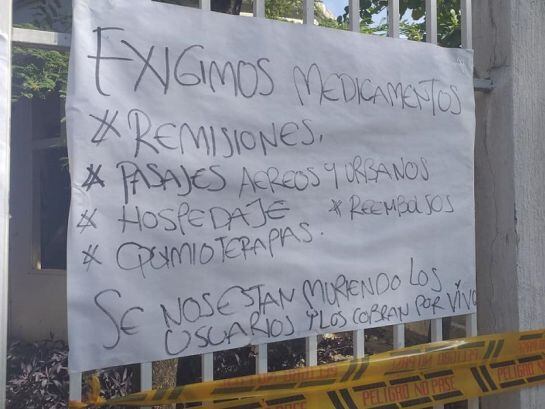 EXIGIMOS MEDICAMENTOS
* REMISIONES.
* PASAJES AEREOS Y URBANOS
* HOSPEDAJE * REEMBOLSOS
* QUIMIOTERAPIAS.
SE NOS ESTAN MURIENDO LOS
USUARIOS Y LOS COBRAN POR VIVO
PELIGRO NO PASE